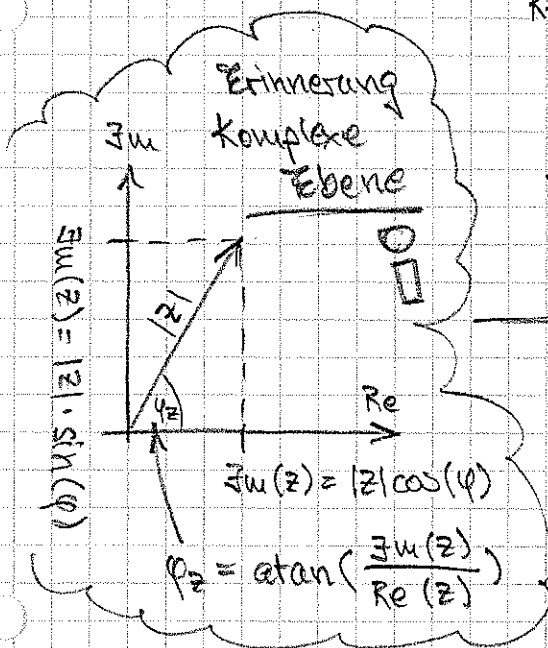 K
Erinnerung
Komplexe
Ebene
Im
|z|
φz
Im(z) = |z| · sin(φ)
Re
Im(z) = |z| cos(φ)
φz = atan( Im(z) / Re(z) )